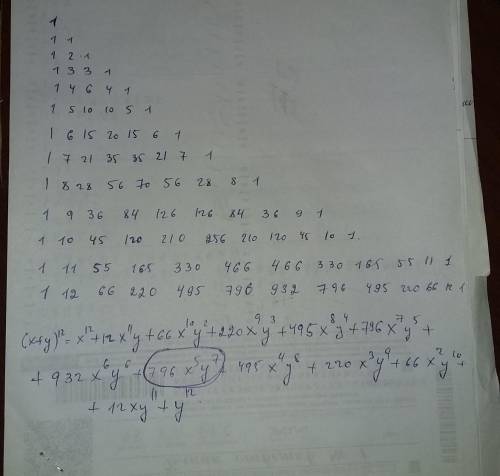 1
1 1
1 2 1
1 3 3 1
1 4 6 4 1
1 5 10 10 5 1
1 6 15 20 15 6 1
1 7 21 35 35 21 7 1
1 8 28 56 70 56 28 8 1
1 9 36 84 126 126 84 36 9 1
1 10 45 120 210 256 210 120 45 10 1
1 11 55 165 330 466 466 330 165 55 11 1
1 12 66 220 495 796 932 796 495 220 66 12 1
(x+y)¹² = x¹²+12x¹¹y+66x¹⁰y²+220x⁹y³+495x⁸y⁴+796x⁷y⁵+
+ 932x⁶y⁶+796x⁵y⁷+495x⁴y⁸+220x³y⁹+66x²y¹⁰+
+ 12xy¹¹+y¹²